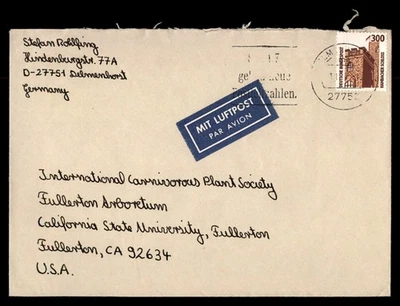 Stefan Rohlfing
Hindenburgstr. 77A
D-27751 Delmenhorst
Germany
300
DEUTSCHE BUNDESPOST
2775
MIT LUFTPOST
PAR AVION
International Carnivorous Plant Society
Fullerton Arboretum
California State University, Fullerton
Fullerton, CA 92634
U.S.A.